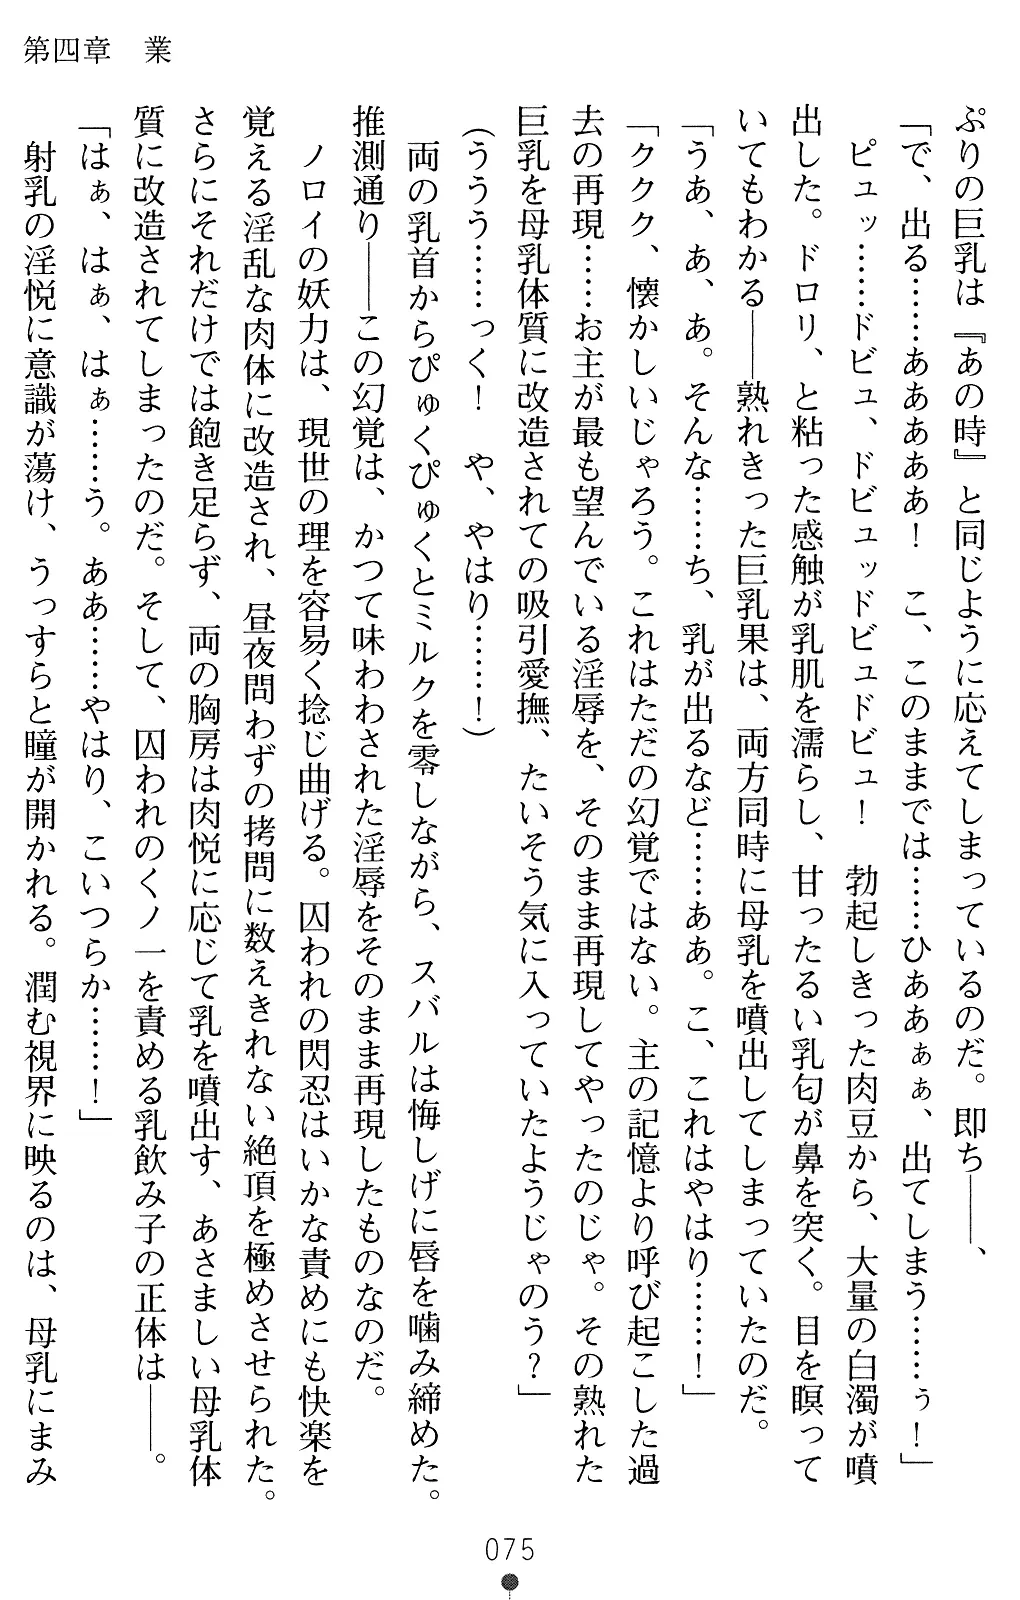 第四章　業
ぷりの巨乳は『あの時』と同じように応えてしまっているのだ。即ち――、
「で、出る……ああああ！　こ、このままでは……ひああぁぁ、出てしまう……ぅ！」
　ピュッ……ドビュ、ドビュッドビュドビュ！　勃起しきった肉豆から、大量の白濁が噴
出した。ドロリ、と粘った感触が乳肌を濡らし、甘ったるい乳匂が鼻を突く。目を瞑って
いてもわかる――熟れきった巨乳果は、両方同時に母乳を噴出してしまっていたのだ。
「うあ、あ、あ。そんな……ち、乳が出るなど……ああ。こ、これはやはり……！」
「ククク、懐かしいじゃろう。これはただの幻覚ではない。主の記憶より呼び起こした過
去の再現……お主が最も望んでいる淫辱を、そのまま再現してやったのじゃ。その熟れた
巨乳を母乳体質に改造されての吸引愛撫、たいそう気に入っていたようじゃのう？」
（ううう……っく！　や、やはり……！）
　両の乳首からぴゅくぴゅくとミルクを零しながら、スバルは悔しげに唇を噛み締めた。
推測通り――この幻覚は、かつて味わわされた淫辱をそのまま再現したものなのだ。
　ノロイの妖力は、現世の理を容易く捻じ曲げる。囚われの閃忍はいかな責めにも快楽を
覚える淫乱な肉体に改造され、昼夜問わずの拷問に数えきれない絶頂を極めさせられた。
さらにそれだけでは飽き足らず、両の胸房は肉悦に応じて乳を噴出す、あさましい母乳体
質に改造されてしまったのだ。そして、囚われのくノ一を責める乳飲み子の正体は――。
「はぁ、はぁ、はぁ……う。ああ……やはり、こいつらか……！」
　射乳の淫悦に意識が蕩け、うっすらと瞳が開かれる。潤む視界に映るのは、母乳にまみ
075